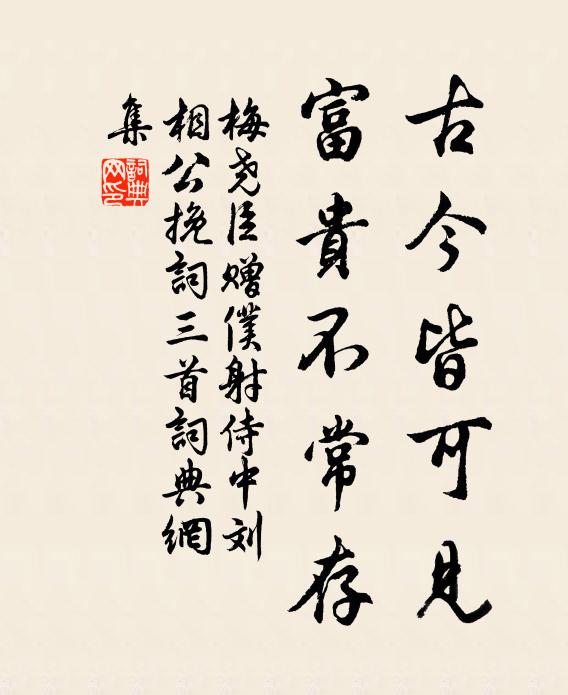 古今皆可見
富貴不常存
梅尧臣赠僕射侍中刘
相公挽詞三首詞典網
集
詞典
网印